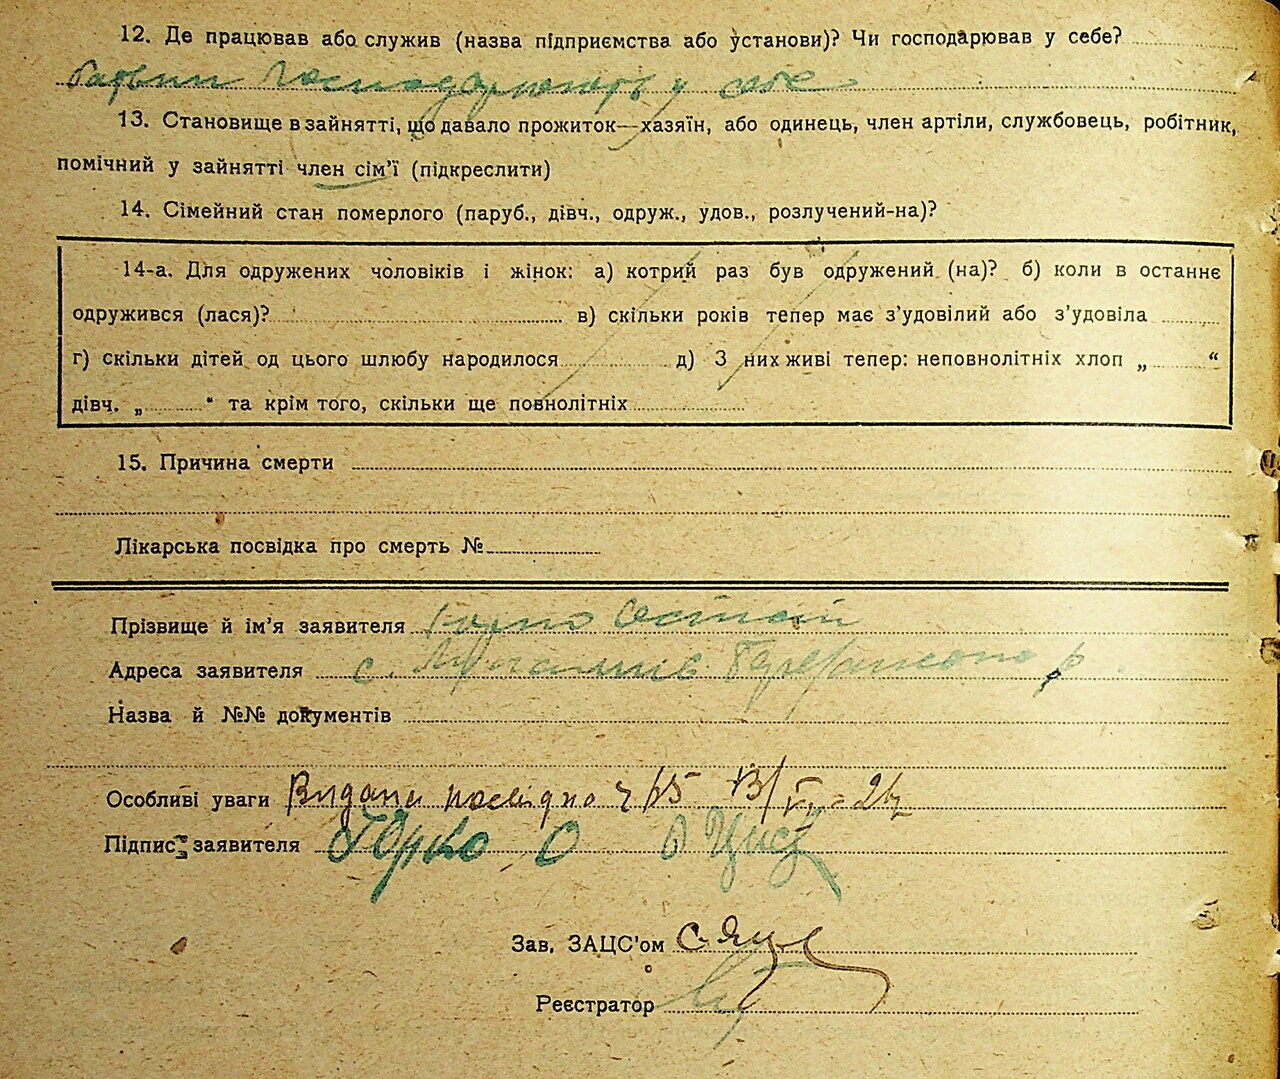 12. Де працював або служив (назва підприємства або установи)? Чи господарював у себе?
батьки господарюють у себе
13. Становище в зайнятті, що давало прожиток—хазяїн, або одинець, член артіли, службовець, робітник,
помічний у зайнятті член сім'ї (підкреслити)
14. Сімейний стан померлого (паруб., дівч., одруж., удов., розлучений-на)?
14-а. Для одружених чоловіків і жінок: а) котрий раз був одружений (на)? б) коли в останнє
одружився (лася)? в) скільки років тепер має з'удовілий або з'удовіла
г) скільки дітей од цього шлюбу народилося д) З них живі тепер: неповнолітніх хлоп „ “
дівч. „ “ та крім того, скільки ще повнолітніх
15. Причина смерти
Лікарська посвідка про смерть №
Прізвище й ім'я заявителя
Адреса заявителя с.
Назва й №№ документів
Особливі уваги Видана
Підпис заявителя О
Зав. ЗАЦС'ом
Реєстратор